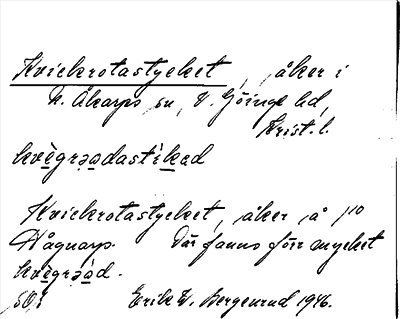 Kvickrotastycket, åker i
N. Åkarps sn, V. Göinge hd,
Krist. l.
kvègrəadastìkad
Kvickrotastycket, åker å
Hågnarp. Där fanns förr mycket
kvègrəàd.
Erik W. Bergenrud 1946.